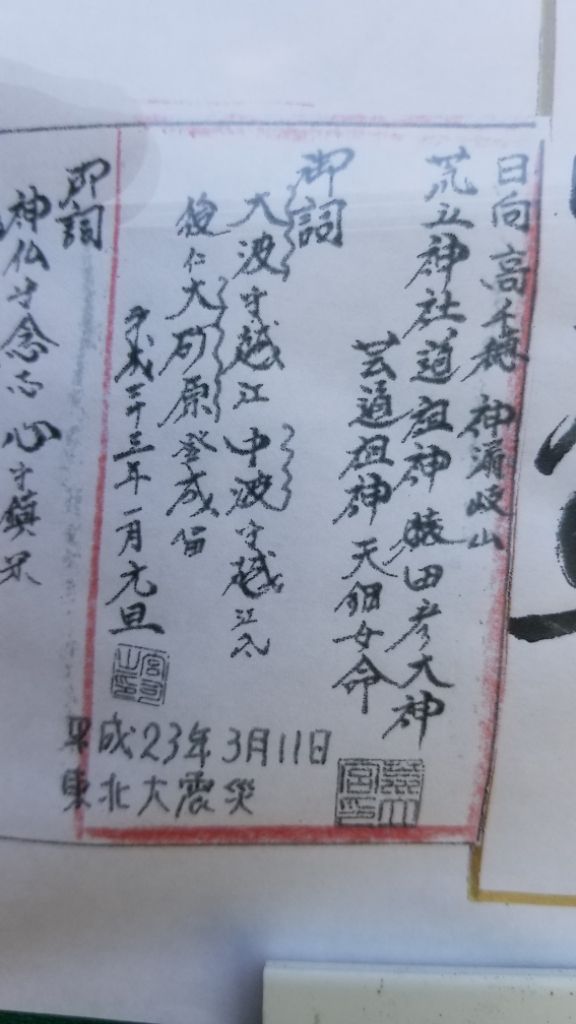 日向高千穂 神漏岐山
荒立神社道祖神 猿田彦大神
芸道祖神 天鈿女命
御詞
大波寸越江 中波寸越江
後仁大砂原登成
平成二十三年一月元旦
平成23年3月11日
東北大震災
御詞
神仏寸念志 心寸鎮